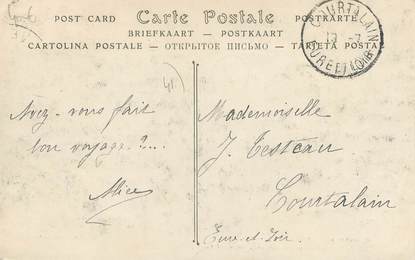 POST CARD Carte Postale POSTKARTE
BRIEFKAART - POSTKAART
CARTOLINA POSTALE - ОТКРЫТОЕ ПИСЬМО - TARJETA POSTAL
COURTALAIN
EURE ET LOIR
41
Avez-vous fait
bon voyage ?...
Alice
Mademoiselle
J. Testeau
Courtalain
Eure-et-Loir